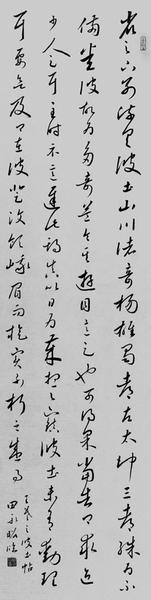 省足下別疏具彼土山川諸奇楊雄蜀都左太沖三都殊為不
備悉彼故為多奇益令其遊目意足也可得果當告卿求迎
少人足耳至時示意遲此期真以日為歲想足下鎮彼土未有動理
耳要欲及卿在彼登汶領峨眉而旋實不朽之盛事
王羲之彼土帖
田永 臨